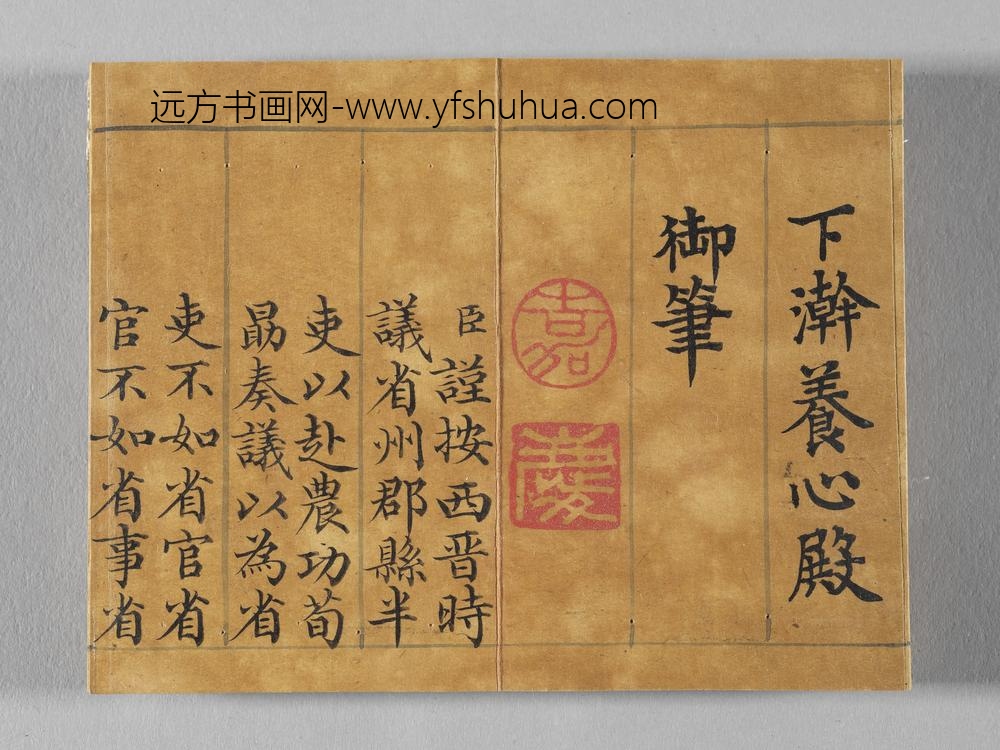 远方书画网-www.yfshuhua.com
下澣養心殿
御筆
嘉
慶
臣謹按西晋時
議省州郡縣半
吏以赴農功荀
勗奏議以為省
吏不如省官省
官不如省事省